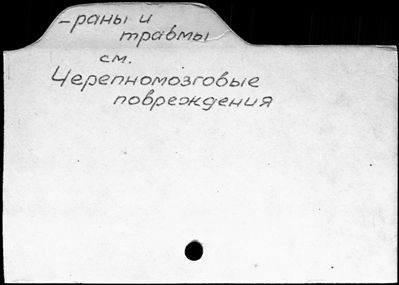 –раны и
травмы
см.
Черепномозговые
повреждения